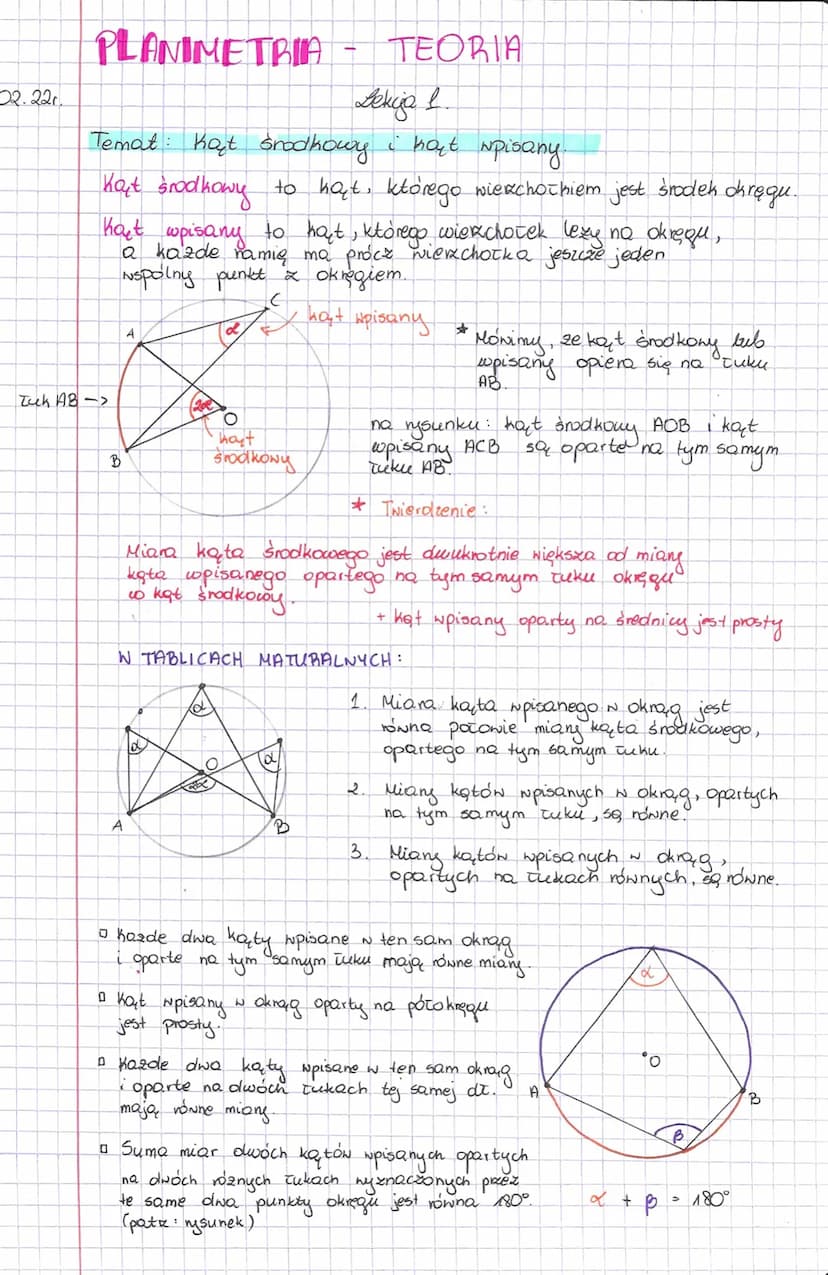 PLANIMETRIA - TEORIA
02.22r.
Lekcja 1.
Temat: Kąt środkowy i kąt wpisany.
Kąt środkowy to kąt, którego wierzchołkiem jest środek okręgu.
Kąt wpisany to kąt, którego wierzchołek leży na okręgu,
a każde ramię ma prócz wierzchołka jeszcze jeden
wspólny punkt z okręgiem.
C
kąt wpisany
A
α
* Mówimy, że kąt środkowy lub
wpisany opiera się na łuku
AB.
łuk AB ->
2α
O
kąt
środkowy
B
na rysunku: kąt środkowy AOB i kąt
wpisany ACB są oparte na tym samym
łuku AB.
* Twierdzenie:
Miara kąta środkowego jest dwukrotnie większa od miary
kąta wpisanego opartego na tym samym łuku okręgu
co kąt środkowy.
+ kąt wpisany oparty na średnicy jest prosty
W TABLICACH MATURALNYCH:
α
α
O
α
2α
A
B
1. Miara kąta wpisanego w okrąg jest
równa połowie miary kąta środkowego,
opartego na tym samym łuku.
2. Miary kątów wpisanych w okrąg, opartych
na tym samym łuku, są równe.
3. Miary kątów wpisanych w okrąg,
opartych na łukach równych, są równe.
▫ Każde dwa kąty wpisane w ten sam okrąg
i oparte na tym samym łuku mają równe miary.
▫ Kąt wpisany w okrąg oparty na półokręgu
jest prosty.
▫ Każde dwa kąty wpisane w ten sam okrąg
i oparte na dwóch łukach tej samej dł.
mają równe miary.
▫ Suma miar dwóch kątów wpisanych opartych
na dwóch różnych łukach wyznaczonych przez
te same dwa punkty okręgu jest równa 180°.
(patrz: rysunek)
α
O
A
B
β
α + β = 180°